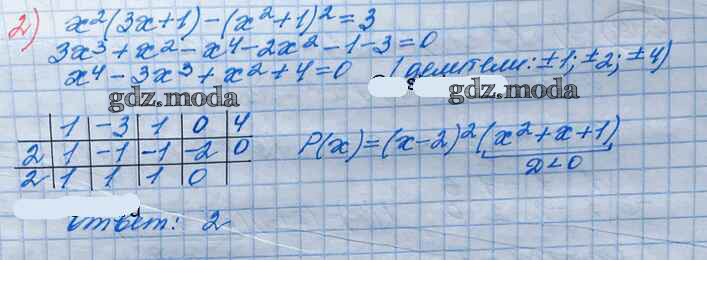 2) x²(3x+1)-(x²+1)²=3
3x³+x²-x⁴-2x²-1-3=0
x⁴-3x³+x²+4=0 (делители: ±1; ±2; ±4)
gdz.moda gdz.moda
1 -3 1 0 4
2 1 -1 -1 -2 0
2 1 1 1 0
P(x)=(x-2)²(x²+x+1)
D<0
Ответ: 2